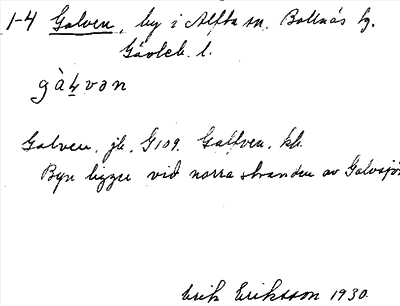 1-4 Galven, by i Alfta sn. Bollnäs tg.
Gävleb. l.
gàl̥vən
Galven, jb, G109. Galfven, kb.
Byn ligger vid norra stranden av Galvsjön
Erik Eriksson 1930.